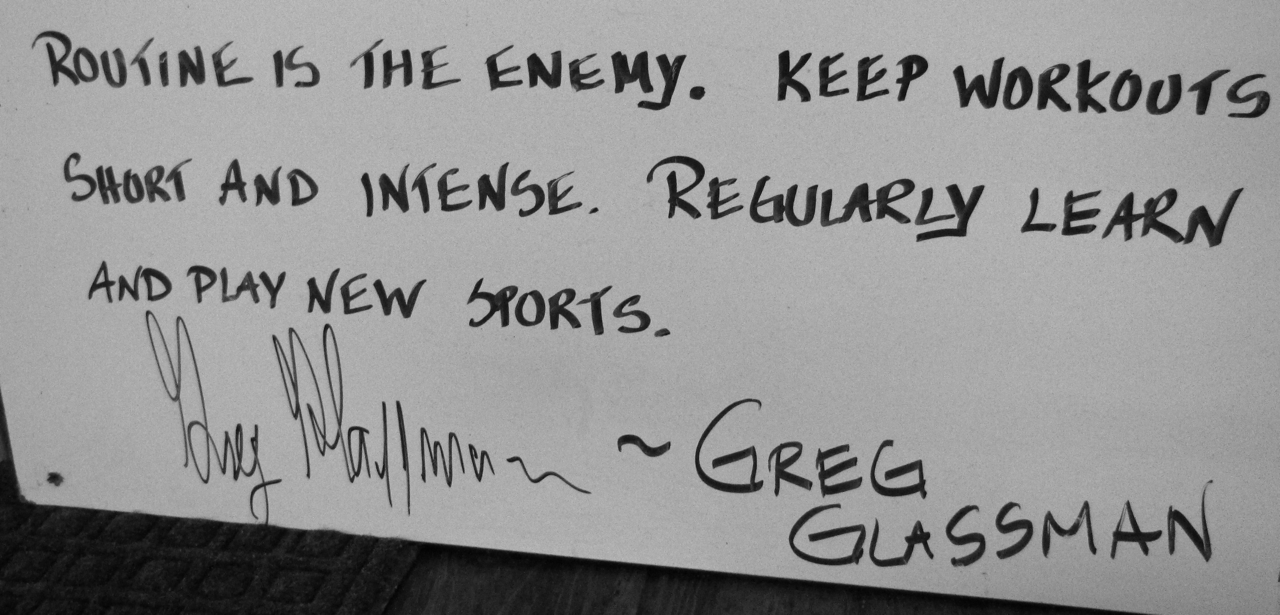 ROUTINE IS THE ENEMY. KEEP WORKOUTS
SHORT AND INTENSE. REGULARLY LEARN
AND PLAY NEW SPORTS.
Greg Glassman ~ GREG
GLASSMAN